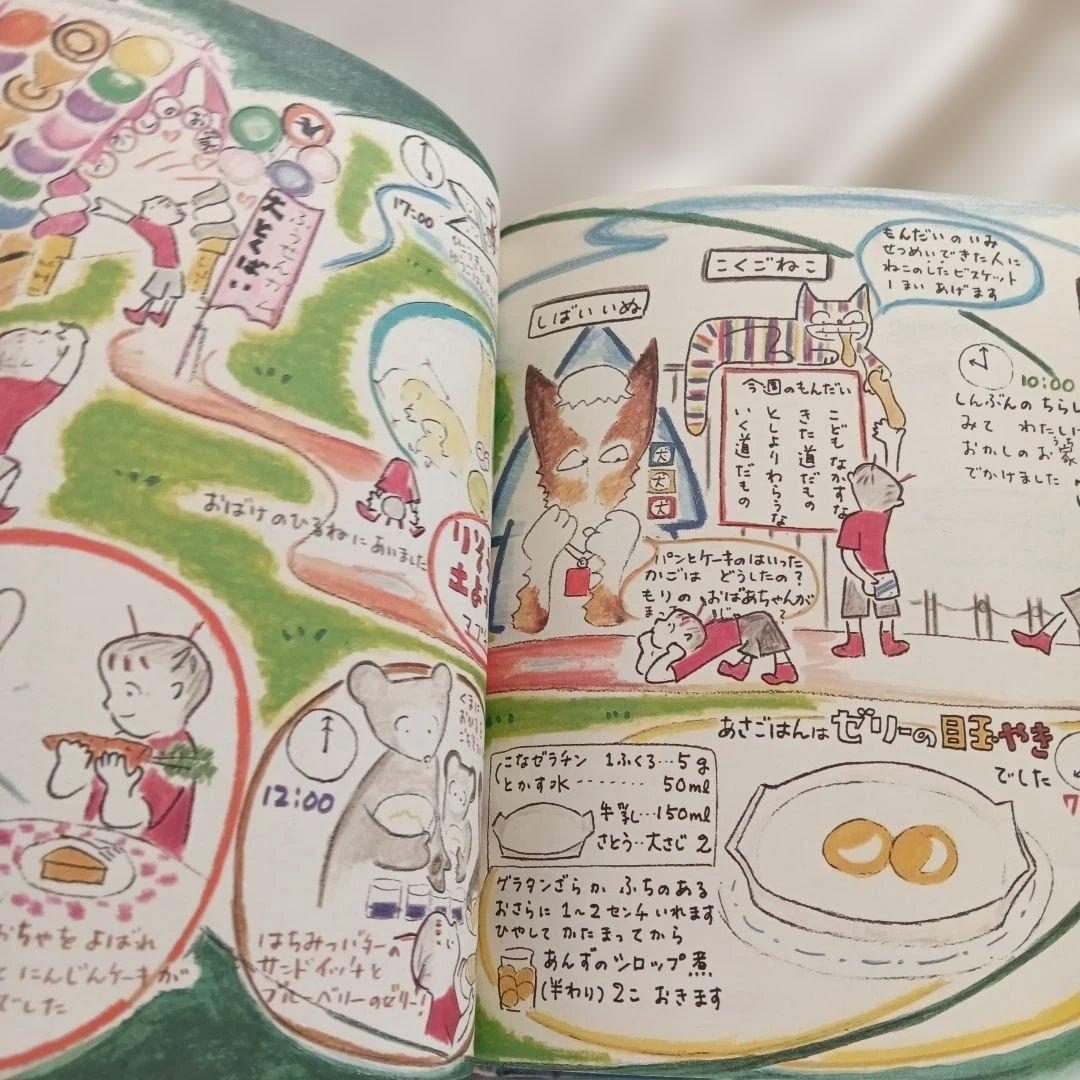 もんだいの いみ
せつめいできた人に
ねこのした ビスケット
1まい あげます
こくごねこ
しばいいぬ
今週のもんだい
こども なかすな
きた道だもの
としより わらうな
いく道だもの
10:00
しんぶんの ちらし
みて わたしは
おかしのお家
うち
でかけました
犬
犬
犬
パンとケーキのはいった
かごは どうしたの?
もりの おばあちゃんが
まっ
あさごはんは ゼリーの目玉やき
でした
7
こなゼラチン 1ふくろ…5g
とかす水 50ml
牛乳…150ml
さとう‥大さじ 2
グラタンざらか ふちのある
おさらに 1〜2センチ いれます
ひやして かたまってから
あんずのシロップ煮
(半わり) 2こ おきます
17:00
ふうせんガム
大とくばい
おばけのひるねにあいました
土よう
12:00
くまに
はちみつバターの
サンドイッチと
ブルーベリーのゼリー!
おちゃを よばれ
と にんじんケーキが
でした